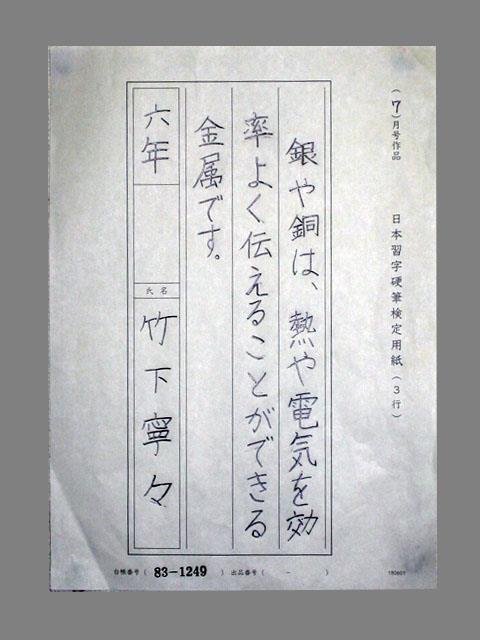 (7)月号作品　日本習字硬筆検定用紙(3行)
銀や銅は、熱や電気を効
率よく伝えることができる
金属です。
六年　氏名　竹下寧々
台帳番号(83-1249)　出品番号(　-　)
180601